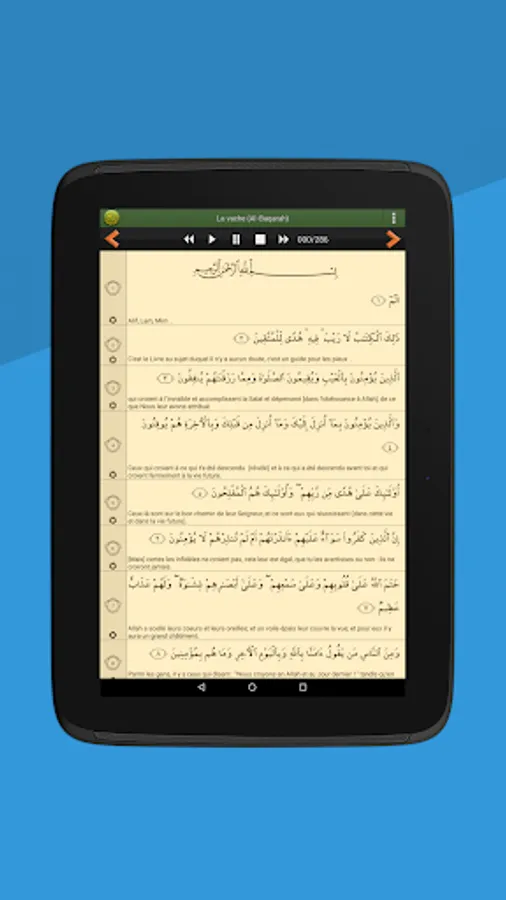 La vache (Al-Baqarah)
000/286
بِسْمِ ٱللَّهِ ٱلرَّحْمَٰنِ ٱلرَّحِيمِ
الٓمٓ ﴿١﴾
Alif, Lam, Mim .
ذَٰلِكَ ٱلْكِتَٰبُ لَا رَيْبَ ۛ فِيهِ ۛ هُدًى لِّلْمُتَّقِينَ ﴿٢﴾
C'est le Livre au sujet duquel il n'y a aucun doute, c'est un guide pour les pieux .
ٱلَّذِينَ يُؤْمِنُونَ بِٱلْغَيْبِ وَيُقِيمُونَ ٱلصَّلَوٰةَ وَمِمَّا رَزَقْنَٰهُمْ يُنفِقُونَ ﴿٣﴾
qui croient à l'invisible et accomplissent la Salat et dépensent [dans l'obéissance à Allah], de ce
que Nous leur avons attribué
وَٱلَّذِينَ يُؤْمِنُونَ بِمَآ أُنزِلَ إِلَيْكَ وَمَآ أُنزِلَ مِن قَبْلِكَ وَبِٱلْءَاخِرَةِ هُمْ يُوقِنُونَ
﴿٤﴾
Ceux qui croient à ce qui t'a été descendu [révélé] et à ce qui a été descendu avant toi et qui
croient fermement à la vie future.
أُو۟لَٰٓئِكَ عَلَىٰ هُدًى مِّن رَّبِّهِمْ ۖ وَأُو۟لَٰٓئِكَ هُمُ ٱلْمُفْلِحُونَ ﴿٥﴾
Ceux-là sont sur le bon chemin de leur Seigneur, et ce sont eux qui réussissent [dans cette vie
et dans la vie future].
إِنَّ ٱلَّذِينَ كَفَرُوا۟ سَوَآءٌ عَلَيْهِمْ ءَأَنذَرْتَهُمْ أَمْ لَمْ تُنذِرْهُمْ لَا يُؤْمِنُونَ ﴿٦﴾
[Mais] certes les infidèles ne croient pas, cela leur est égal, que tu les avertisses ou non : ils ne
croiront jamais.
خَتَمَ ٱللَّهُ عَلَىٰ قُلُوبِهِمْ وَعَلَىٰ سَمْعِهِمْ ۖ وَعَلَىٰٓ أَبْصَٰرِهِمْ غِشَٰوَةٌ ۖ وَلَهُمْ عَذَابٌ
عَظِيمٌ ﴿٧﴾
Allah a scellé leurs coeurs et leurs oreilles; et un voile épais leur couvre la vue; et pour eux il y
aura un grand châtiment.
وَمِنَ ٱلنَّاسِ مَن يَقُولُ ءَامَنَّا بِٱللَّهِ وَبِٱلْيَوْمِ ٱلْءَاخِرِ وَمَا هُم بِمُؤْمِنِينَ ﴿٨﴾
Parmi les gens, il y a ceux qui disent : "Nous croyons en Allah et au Jour dernier ! " tandis qu'en